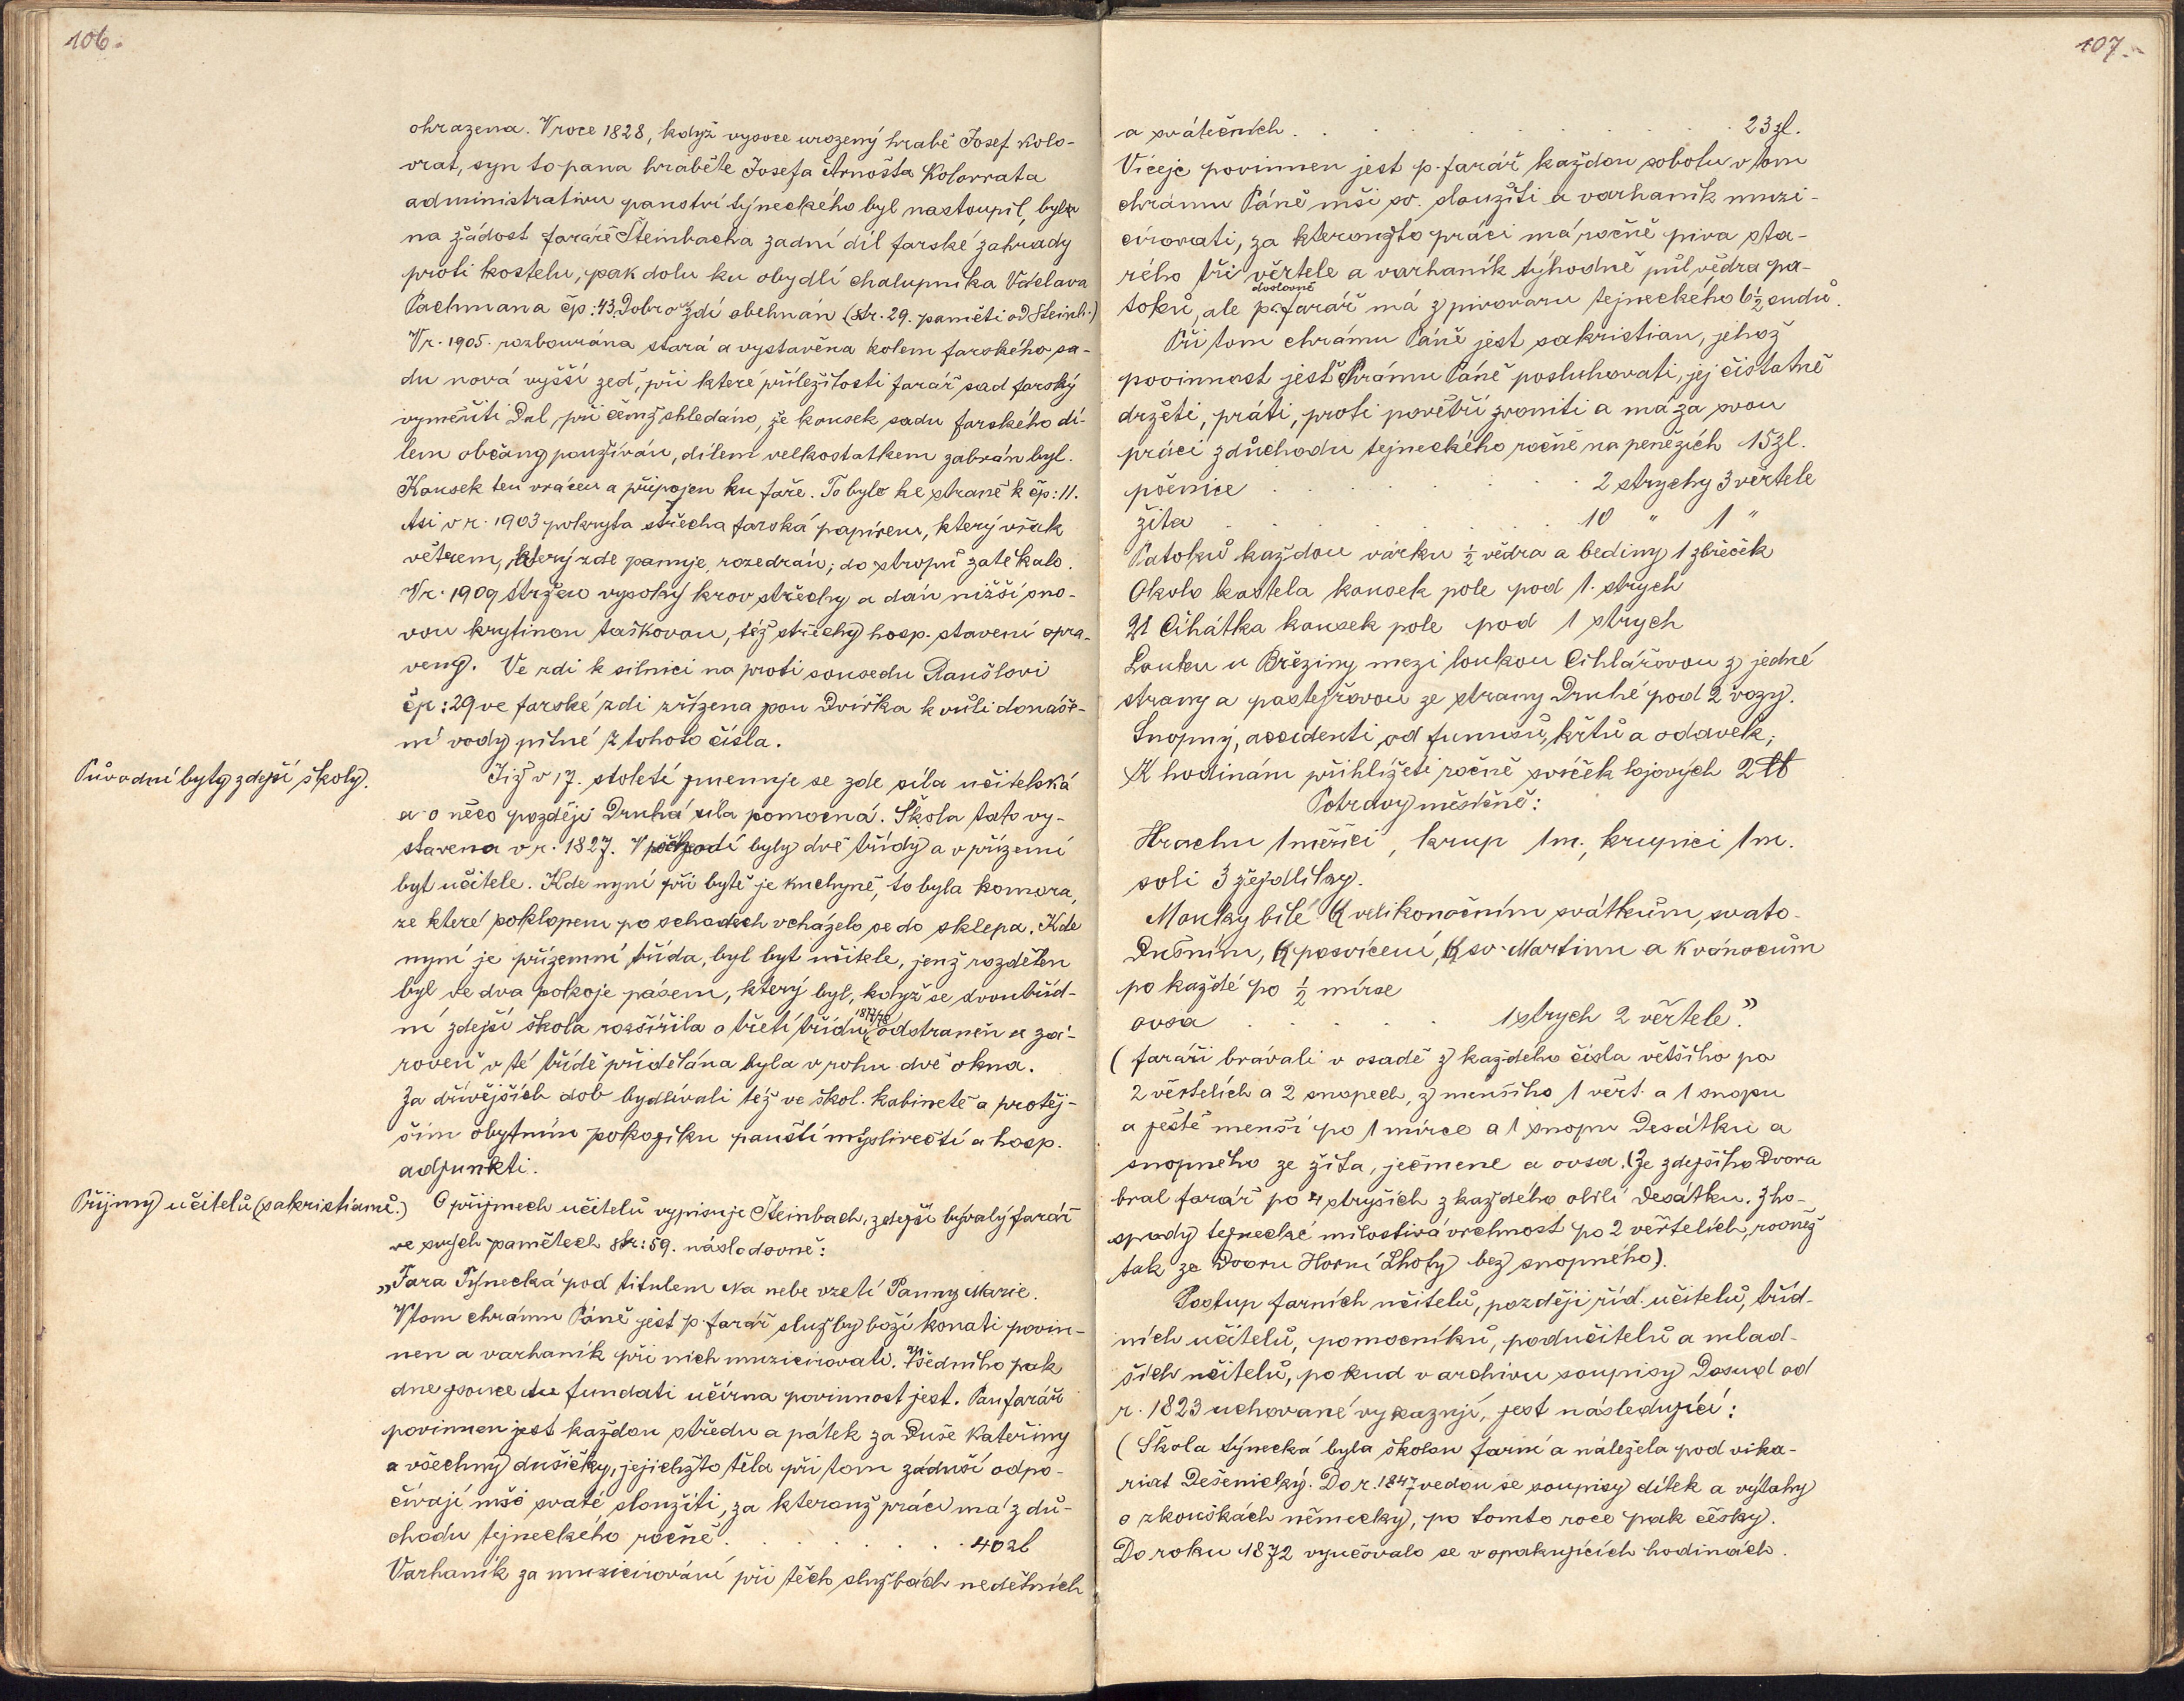 106.
ohrazena. V roce 1828, když vysoce urozený hrabě Josef Kolo-
vrat, syn to pana hraběte Josefa Arnošta Kolovrata
administrativu panství týneckého byl nastoupil, byla
na žádost faráře Steinbacha zadní díl farské zahrady
proti kostelu, pak dolu ku obydlí chalupníka Václava
Pachmana čp: 43. Dobro zdí obehnán (str. 29. paměti od Steinb.)
V r. 1905. rozbourána stará a vystavěna kolem farského sa-
du nová vyšší zeď, při které příležitosti farář sad farský
vyměřiti dal, při čemž shledáno, že kousek sadu farského dí-
lem občany používán, dílem velkostatkem zabrán byl.
Kousek ten vrácen a připojen ku faře. To bylo ke straně k čp: 11.
Asi v r. 1903 pokryta střecha farská papírem, který však
větrem, který zde panuje, rozedrán; do stropu zatékalo.
V r. 1909 stržen vysoký krov střechy a dán nižší s no-
vou krytinou taškovou, též střechy hosp. stavení opra-
veny. Ve zdi k silnici na proti sousedu Raušlovi
čp: 29 ve farské zdi zřízena jsou dvířka k vůli donáše-
ní vody pitné z tohoto čísla.
Původní byty zdejší školy.
Již v 17. století jmenuje se zde síla učitelská
a o něco později druhá síla pomocná. Škola tato vy-
stavena v r. 1827. V poschodí byly dvě třídy a v přízemí
byt učitele. Kde nyní při bytě je kuchyně, to byla komora,
ze které poklopem po schodech vcházelo se do sklepa. Kde
nyní je přízemní třída, byl byt učitele, jenž rozdělen
byl ve dva pokoje pásem, který byl, když se dvoutříd-
ní zdejší škola rozšířila o třetí třídu 1877/78 odstraněn a zá-
roveň v té třídě přidělána byla v rohu dvě okna.
Za dřívějších dob bydlívali též ve škol. kabinetě a protěj-
ším obytním pokojíku panští myslivečtí a hosp.
adjunkti.
Příjmy učitelů (sakristianů.)
O příjmech učitelů vypisuje Steinbach, zdejší bývalý farář
ve svých pamětech str: 59. následovně:
„Fara Týnecká pod titulem Na nebe vzetí Panny Marie.
V tom chrámu Páně jest p. farář služby boží konati povin-
nen a varhaník při nich muzicirovati. Všedního pak
dne jsouce tu fundati učírna povinnost jest. Pan farář
povinnen jest každou středu a pátek za duše Kateřiny
a všechny dušičky, jejichžto těla při tom záduší odpo-
čívají mši svaté sloužiti, za kteroužto práci má z dů-
chodu tejneckého ročně . . . . . . . 40 zl
Varhaník za muzicirování při těch službách nedělních
107.
a svátečních . . . . . . . . 23 zl.
Víceje povinnen jest p. farář každou sobotu v tom
chrámu Páně mši sv. sloužiti a varhaník muzi-
círovati, za kteroužto práci má ročně piva sta-
rého tři věrtele a varhaník týhodně půl vědra pa-
toků, ale doslovně p. farář má z pivovaru tejneckého 6 ½ sudů.
Při tom chrámu Páně jest sakristian, jehož
povinnost jest chrámu Páně posluhovati, jej čistatně
držeti, práti, proti povětří zvoniti a má za svou
práci z důchodu tejneckého ročně na penězích 15 zl.
pšenice . . . . . . 2 strychy 3 věrtele
žita . . . . . . 10 " 1 "
Patoků každou várku ½ vědra a bediny 1 zbřeček
Okolo kostela kousek pole pod 1. strych
U Cihátka kousek pole pod 1 strych
Louku u Březiny mezi loukou Cihlářovou z jedné
strany a pastejřovou ze strany druhé pod 2 vozy.
Snopný, accidenti od funusů, křtů a odavek,
K hodinám přihlížeti ročně svíček lojových 2 ℔
Potravy měsíčně:
Hrachu 1 měřici, krup 1 m., krupici 1 m.
soli 3 žejdlíky.
Mouky bílé k velikonočním svátkům, svato-
dušním, k posvícení, k sv. Martinu a k vánocům
po každé po ½ mírce
ovsa . . . . . 1 strych 2 věrtele."
(faráři brávali v osadě z každého čísla většího po
2 věrtelích a 2 snopech, z menšího 1 věrt. a 1 snopu
a ještě menší po 1 mírce a 1 snopu desátku a
snopného ze žita, ječmene a ovsa. (Ze zdejšího dvora
bral farář po 4 stryších z každého obilí desátku. Z ho-
spody tejnecké milostivá vrchnost po 2 věrtelích, rovněž
tak ze dvoru Horní Lhoty bez snopného).
Postup farních učitelů, později říd. učitelů, tříd-
ních učitelů, pomocníků, podučitelů a mlad-
ších učitelů, pokud v archivu soupisy dosud od
r. 1823 uchované vykazují, jest následující:
(Škola týnecká byla školou farní a náležela pod vika-
riat Dešenický. Do r. 1847 vedou se soupisy dítek a výtahy
o zkouškách německy, po tomto roce pak česky.
Do roku 1872 vyučovalo se v opakujících hodinách.